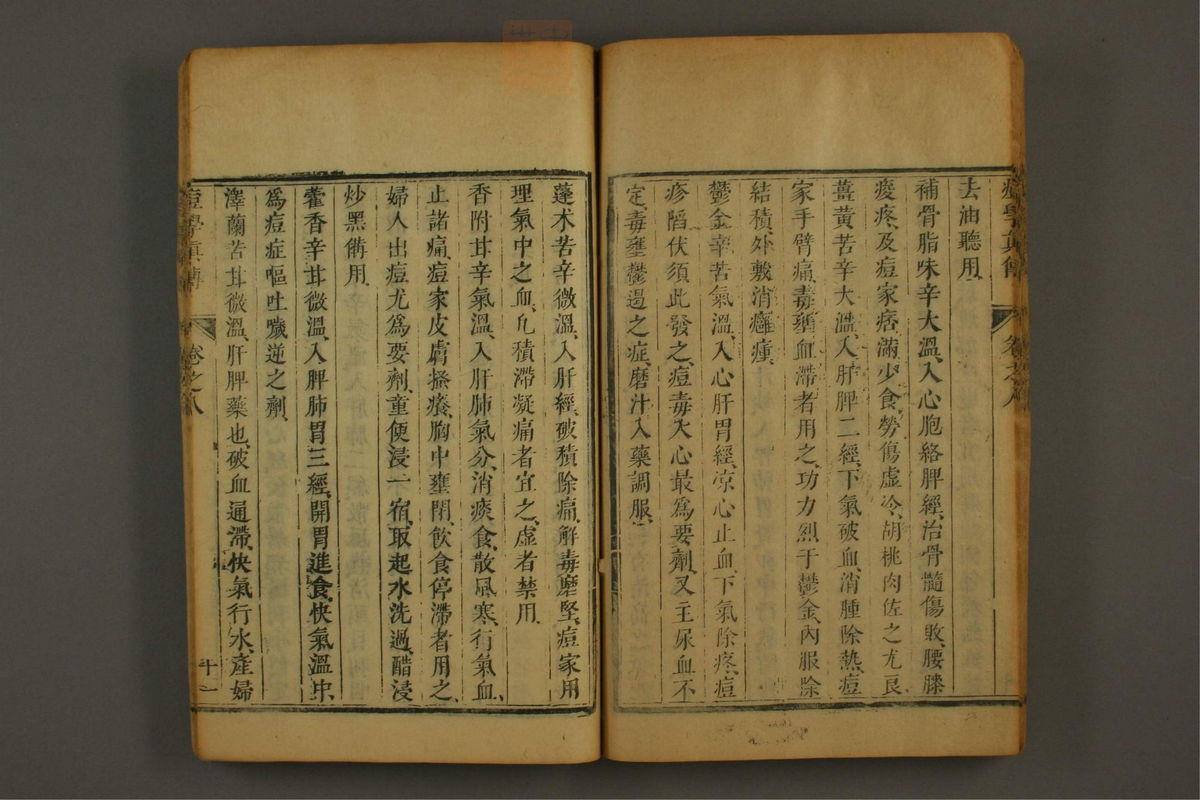 痘學眞傳 卷之八
去油聽用
補骨脂味辛大溫入心胞絡脾經治骨髓傷敗腰膝
痠疼及痘家痞滿少食勞傷虛冷胡桃肉佐之尤良
薑黃苦辛大溫入肝脾二經下氣破血消腫除熱痘
家手臂痛毒壅血滯者用之功力烈于鬱金內服除
結積外敷消癰腫
鬱金辛苦氣溫入心肝胃經凉心止血下氣除疼痘
疹陷伏須此發之痘毒入心最爲要劑又主尿血不
定毒壅鬱遏之症磨汁入藥調服
蓬术苦辛微溫入肝經破積除痛解毒磨堅痘家用
理氣中之血凢積滯凝痛者宜之虛者禁用
香附甘辛氣溫入肝肺氣分消痰食散風寒行氣血
止諸痛痘家皮膚搔癢胸中壅閉飲食停滯者用之
婦人出痘尤爲要劑童便浸一宿取起水洗過醋浸
炒黑備用
藿香辛甘微溫入脾肺胃三經開胃進食快氣溫中
爲痘症嘔吐噦逆之劑
澤蘭苦甘微溫肝脾藥也破血通滯快氣行水產婦
痘學眞傳 卷之八 十一